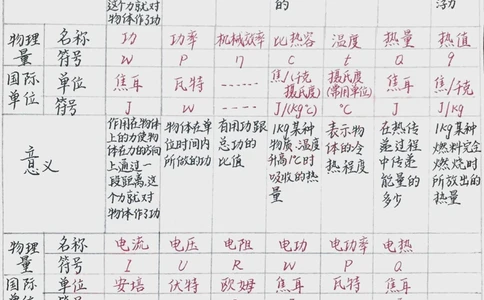 这个力就对 的 浮力
物体作了功
物理量 名称 功 功率 机械效率 比热容 温度 热量 热值
符号 W P η C t Q q
国际单位 单位 焦耳 瓦特 ----- 焦/(千克摄氏度) 摄氏度(常用单位) 焦耳 焦/千克
符号 J W ----- J/(kg℃) ℃ J J/kg
意义
作用在物体上的力使物体在力的方向上通过一段距离,这个力就对物体作了功
物体在单位时间内所做的功
有用功跟总功的比值
1kg某种物质,温度升高1℃时吸收的热量
表示物体的冷热程度
在热传递过程中传递能量的多少
1kg某种燃料完全燃烧时所放出的热量
物理量 名称 电流 电压 电阻 电功 电功率 电热
符号 I U R W P Q
国际 单位 安培 伏特 欧姆 焦耳 瓦特 焦耳